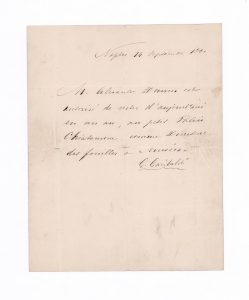 Naples 14 Septembre 1860
M. Alexandre Dumas est
autorisé de rester d'aujourd'hui
en un an, au petit Palais
Chiatamone comme Directeur
des fouilles & Musées
G. Garibaldi